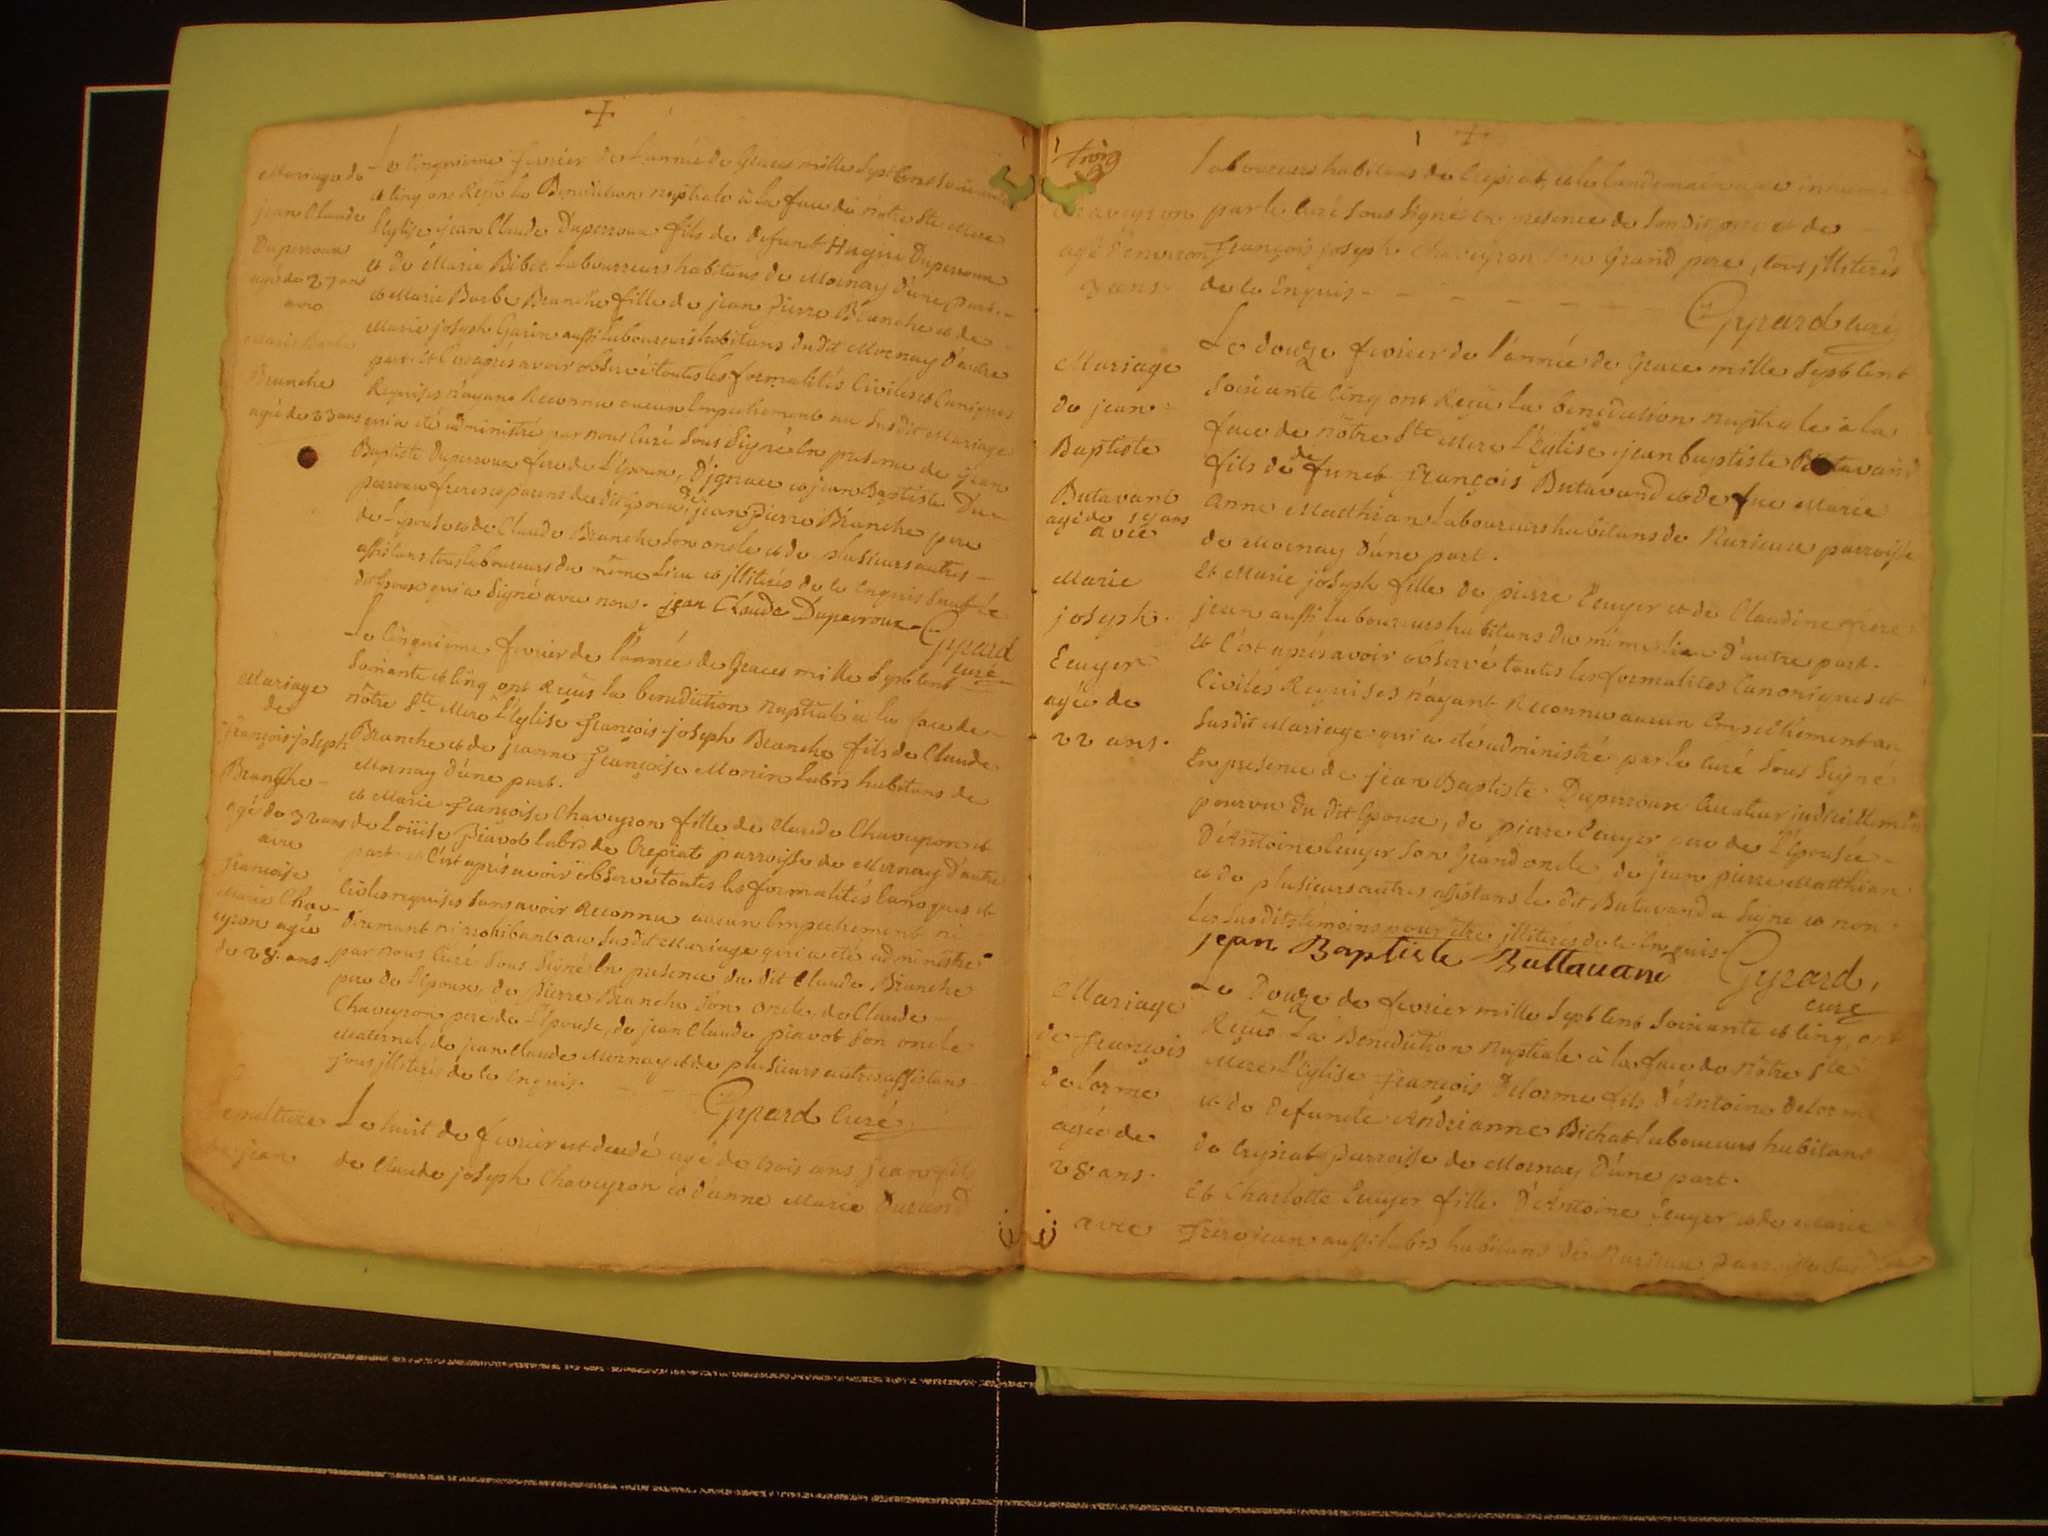 Mariage de
jean Claude
Duperroux
agé de 27 ans
avec
Marie Barbe
Branche
agée de 23 ans
Le cinquieme fevrier de l'année de Grace mille sept cent soixante
et cinq ont Reçu la Benediction nuptiale à la face de nôtre Ste Mere
l'Eglise jean Claude Duperroux fils de defunct Hugue Duperroux
et de Marie Bibet Labourreurs habitans de Mornay d'une part.
et Marie Barbe Branche fille de jean Pierre Branche et de
Marie joseph Garin aussi Laboureurs habitans du dit Mornay d'autre
part. et C'est aprés avoir observé toutes les formalités Civiles et Canoniques
Requises n'ayant Reconnu aucun Empechement au susdit Mariage
qui a été administré par nous Curé sous signé En presence de jean
Baptiste Duperroux frere de L'Epoux, D'ignace et jean Baptiste Du-
perroux freres et parens du dit Epoux, de jean Pierre Branche pere
de L'epouse et de Claude Branche son oncle et de plusieurs autres
assistans tous laboureurs du même Lieu et illiterés de ce Enquis sauf le
dit Epoux qui a signé avec nous. jean Claude Duperroux
Gyrard
curé
Mariage
de
François joseph
Branche
agé de 32 ans
avec
françoise
Marie Chav-
eyron agée
de 28. ans
Le Cinquieme fevrier de l'année de Graces mille Sept Cent
Soixante et Cinq ont Reçus la benediction nuptiale à la face de
nôtre Ste Mere l'Eglise François joseph Branche fils de Claude
Branche et de jeanne Françoise Monin labrs habitans de
Mornay d'une part.
et Marie Françoise Chaveyron fille de Claude Chaveyron et
de Loüise Piavot labrs de Crepiat parroisse de Mornay d'autre
part. et C'est aprés avoir observé toutes les formalités Canoniques et
Civiles requises sans avoir Reconnu aucun Empechement ni
dirimant ni prohibant au susdit Mariage qui a été administré
par nous Curé sous signé En presence du dit Claude Branche
pere de l'Epoux, de Pierre Branche son oncle, de Claude
Chaveyron pere de L'Epouse, de jean Claude Piavot son oncle
Maternel, de jean Claude Mornay et de plusieurs autres assistans
tous illiterés de ce Enquis.
Gyrard Curé
Sepulture
de jean
Le huit de fevrier est decedé agé de trois ans jean fils
de Claude joseph Chaveyron et d'anne Marie Durand
trois
Chaveyron
agé d'environ
3 ans.
laboureurs habitans de Crepiat, et le landemain a été inhumé
par le Curé sous signé en presence de son dit pere et de
François joseph Chaveyron son Grand pere, tous illiterés
de ce Enquis
Gyrard Curé
Mariage
de jean
Baptiste
Butavand
agé de ans
avec
Marie
joseph
Ecuyer
agée de
22 ans.
Le douze fevrier de l'année de Grace mille Sept Cent
Soixante Cinq ont Reçu la benediction nuptiale à la
face de nôtre Ste Mere l'Eglise jean baptiste Butavand
fils de defunct François Butavand et de fue Marie
Anne Matthian Laboureurs habitans de Nurieux parroisse
de Mornay d'une part.
et Marie joseph fille de pierre Ecuyer et de Claudine frere
jean aussi laboureurs habitans du même lieu d'autre part.
et C'est aprés avoir observé toutes les formalités Canoniques et
Civiles Requises n'ayant Reconnu aucun Empechement au
susdit Mariage qui a été administré par le Curé sous signé
En presence de jean Baptiste Duperroux Curateur judiciellement
pourvu du dit Epoux, de pierre Ecuyer pere de l'Epousée
D'Antoine Ecuyer son Grand oncle, de jean pierre Matthian
et de plusieurs autres assistans le dit Butavand a signé et non
les susdits témoins pour être illiterés de ce Enquis.
jean Baptiste Buttavand
Gyrard,
curé
Mariage
de François
Delorme
agé de
28. ans.
avec
Le Douze de fevrier mille Sept Cent Soixante et Cinq, ont
Reçus La Benediction nuptiale à la face de nôtre Ste
Mere l'Eglise François Delorme fils d'Antoine Delorme
et de Defuncte Andrianne Bichat laboureurs habitans
de Crepiat parroisse de Mornay d'une part.
et Charlotte Ecuyer fille D'Antoine Ecuyer et de Marie
frere jean aussi labrs habitans de Nurieux parroisse